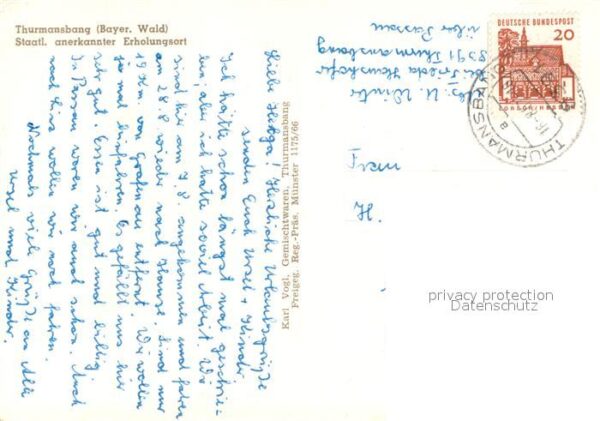 Thurmansbang (Bayer. Wald)
Staatl. anerkannter Erholungsort
Liebe Helga! Herzliche Urlaubsgrüße
senden Euch Ursel + Kinder.
Ich hätte schon längst mal geschrie-
ben, aber ich hatte soviel Arbeit. Wir
sind hier am 7.8. angekommen und fahren
am 28.8 wieder nach Hause. Sind nur
19 Km. von Grafenau entfernt. Wir wollen
ja mal hinfahren. Es gefällt uns hier
sehr gut. Essen ist gut und billig.
In Passau waren wir auch schon. Auch
nach Linz wollen wir noch fahren.
Nochmals viele Grüße an Alle
Ursel und Kinder.
Karl Vogl, Gemischtwaren, Thurmansbang
Freigeg. Reg.-Präs. Münster 1175/66
Abs: U. Winter
bei Frieda
8391 Thurmansbang
über Passau
DEUTSCHE BUNDESPOST
20
LORSCH/HESSEN
THURMANSBANG
a
H.
privacy protection
Datenschutz